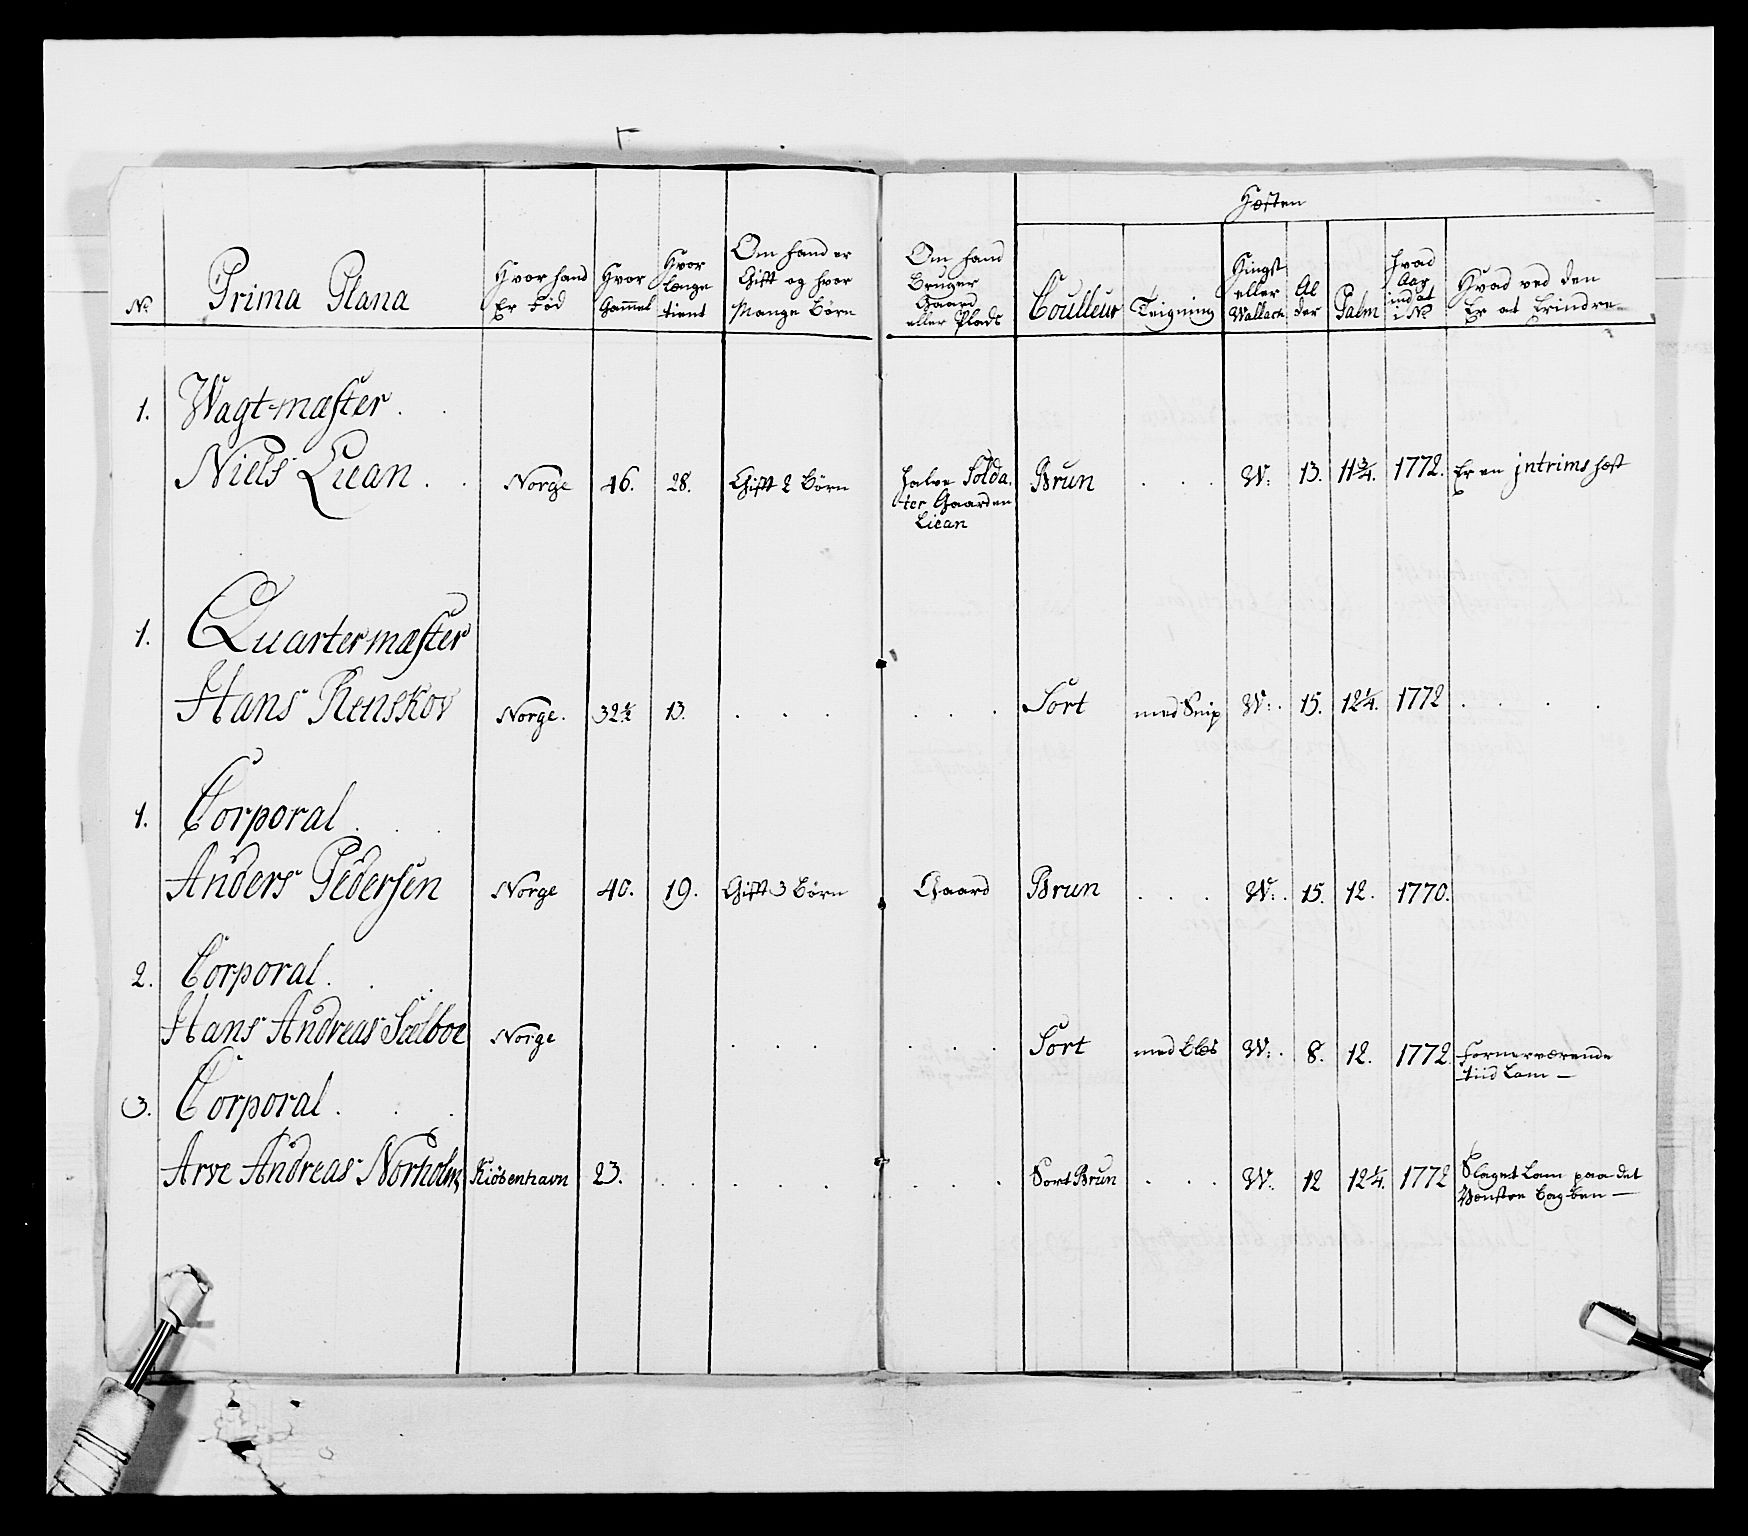 Hesten
No
Prima Plana
Hvor hand
Er Fød
Hvor
Gammel
Hvor
længe
tient
Om hand er
Gift og hvor
Mange Børn
Om hand
Bruger
Gaard
eller Plads
Coulleur
Teigning
Hingst
eller
Wallach
Al
der
Palm
hvad
Aar
ind at
i No
Hvad ved den
Er at Erindre
1. Wagt-mæster . .
Niels Liean . . Norge 46. 28. Gift 2 Børn halve Solda-
ter Gaarden
Liean
Brun . . . W: 13. 11 3/4. 1772. Er en jntrims hest
1. Quartermæster
Hans Renskov Norge. 32 1/2 13. . . . . . . Sort med Snip W: . 15. 12 1/4. 1772 . . . .
1. Corporal . . .
Anders Pedersen Norge 40. 19. Gift 3 Børn Gaard Brun . . . W: . 15. 12. 1770.
2. Corporal . . .
Hans Andreas Sælboe Norge . . . . . . Sort med bles W: . 8. 12. 1772. Fornærværende
tiid Lam —
3. Corporal . . .
Arve Andreas Norholm Kiöbenhavn 23. . . . . . . . . Sort Brun . . . W: 12 12 1/4. 1772 Slaget Lam paa det
Venstre bag-been —